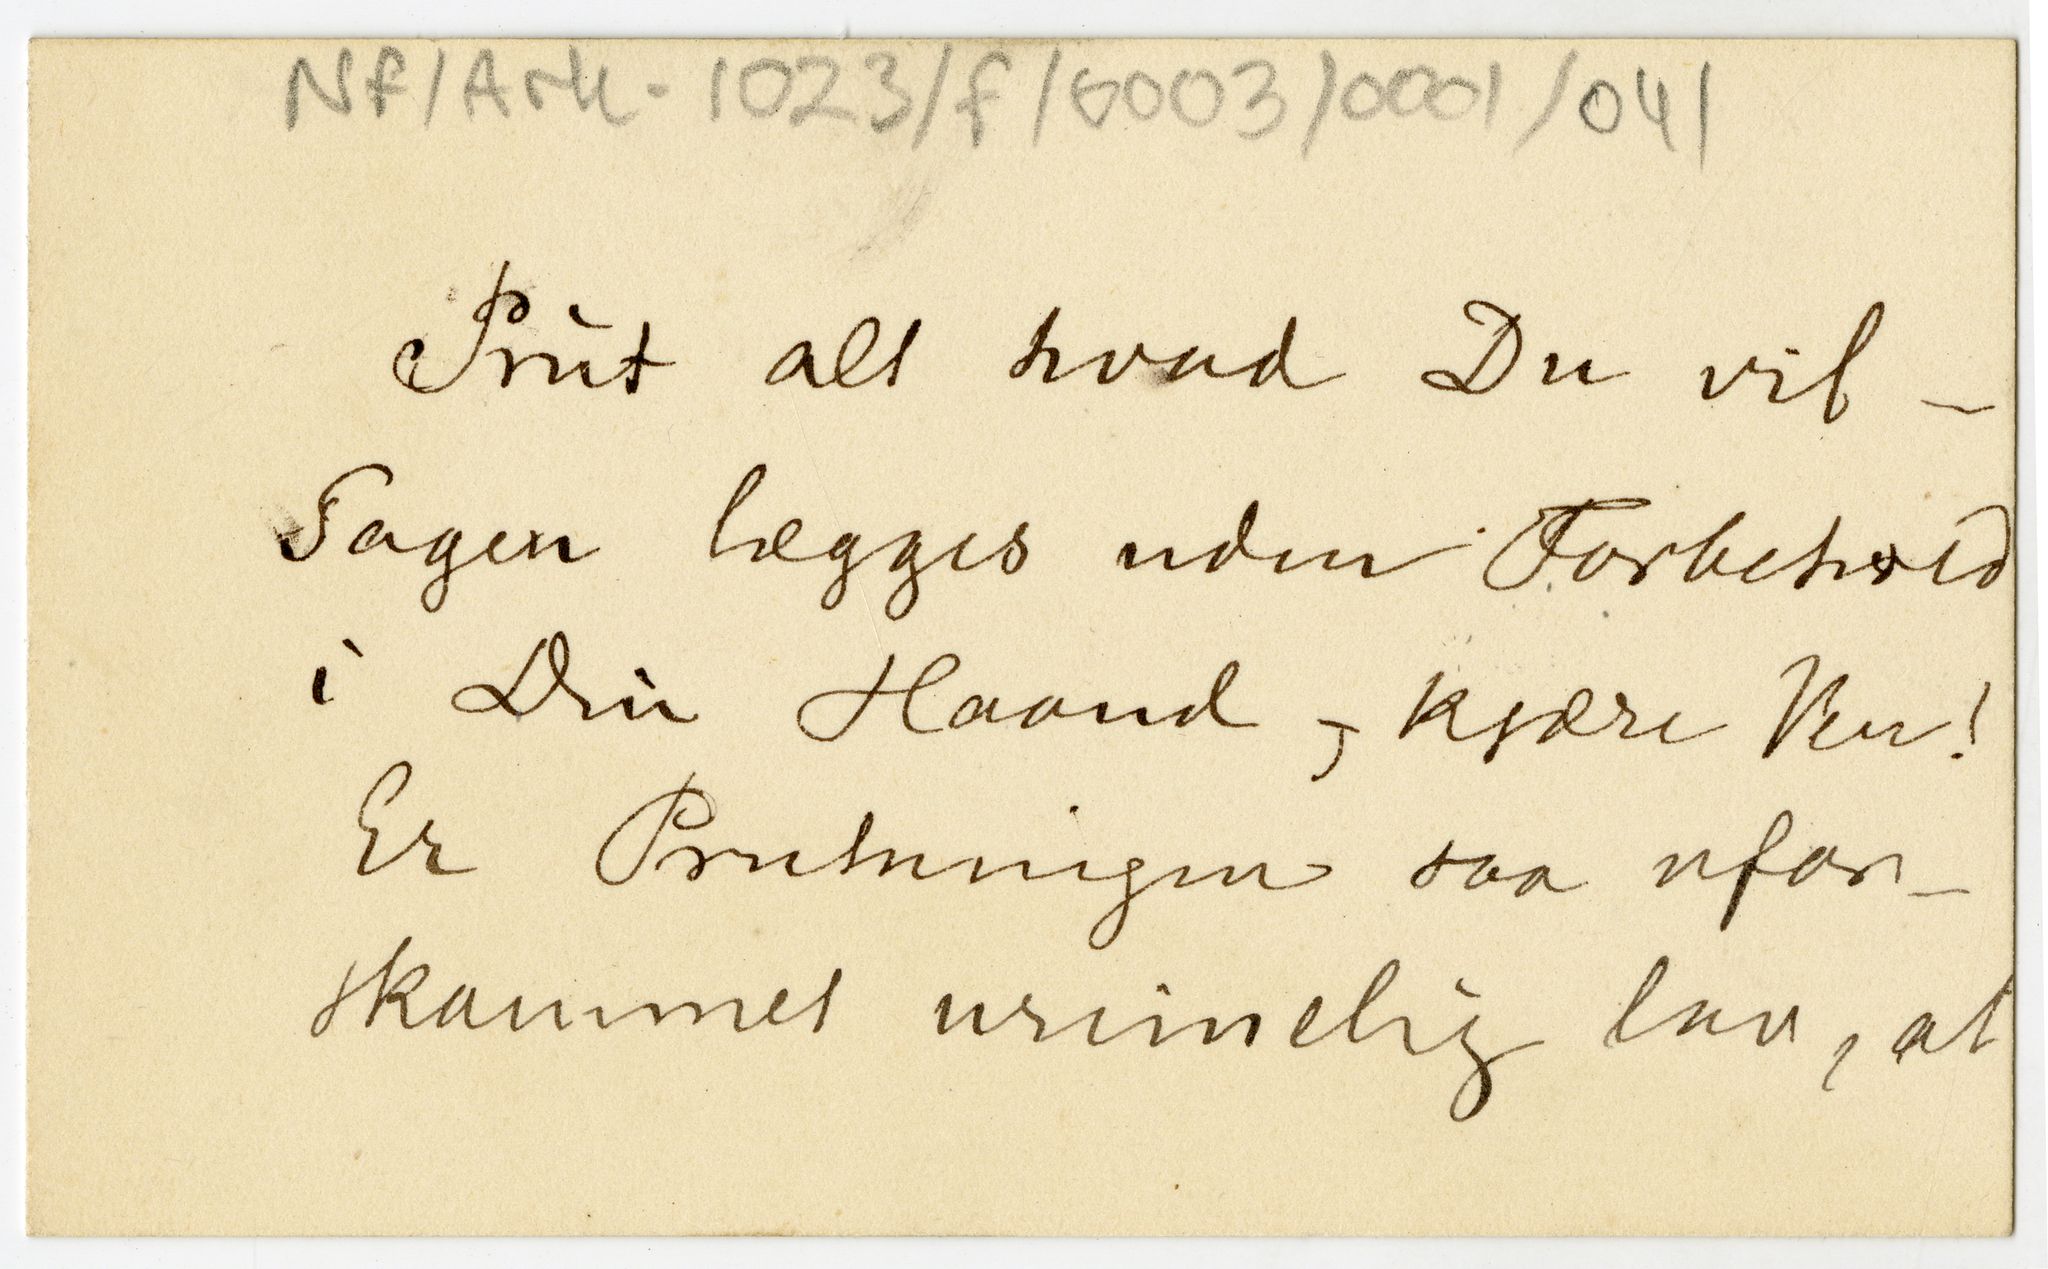 NF/Ark-1023/f/0003/0001/041
Prut alt hvad Du vil –
Sagen lægges uden Forbehold
i Din Haand, kjære Ven!
Er Prutningen saa ufor-
skammet urimelig lav, at